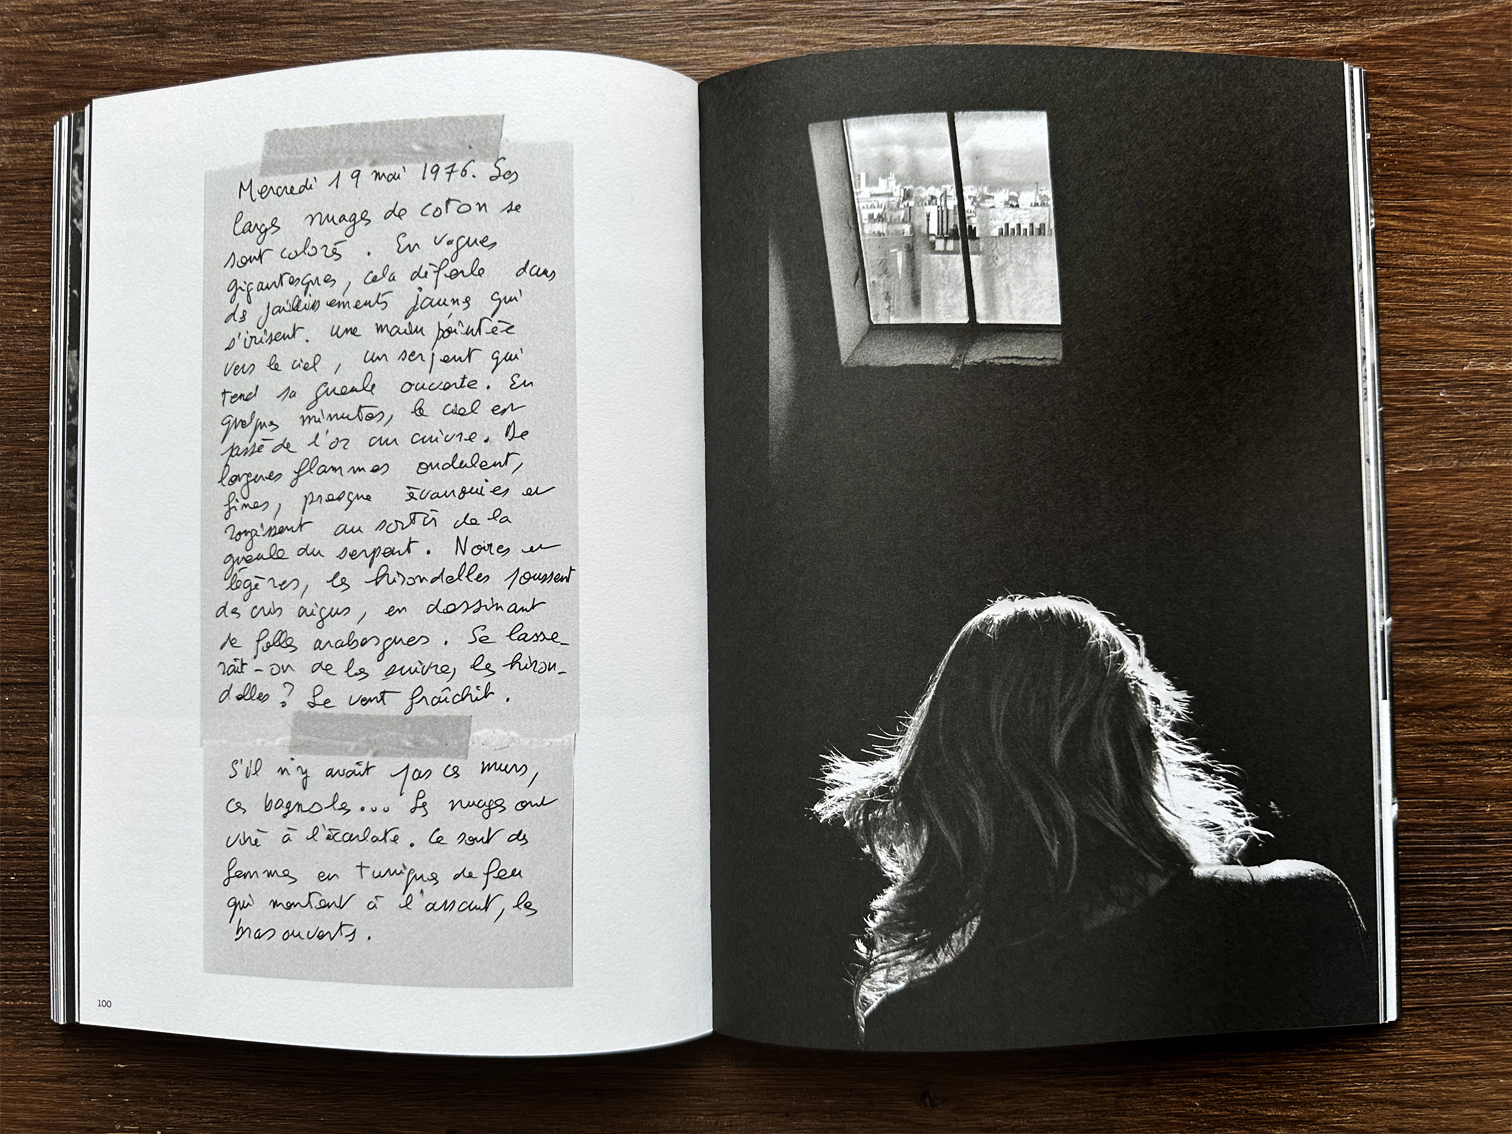 Mercredi 19 mai 1976. Les
larges nuages de coton se
sont colorés. En vagues
gigantesques, cela déferle dans
des jaillissements jaunes qui
s'irisent. Une main pointée
vers le ciel, un serpent qui
tend sa gueule ouverte. En
quelques minutes, le ciel est
passé de l'or au cuivre. De
longues flammes ondulent,
fines, presque évanouies et
rougissent au sortir de la
gueule du serpent. Noires et
légères, les hirondelles poussent
des cris aigus, en dessinant
de folles arabesques. Se lasse-
rait-on de les suivre, les hiron-
delles ? Le vent fraîchit.
S'il n'y avait pas ces murs,
ces bagnoles... Les nuages ont
viré à l'écarlate. Ce sont des
femmes en tuniques de feu
qui montent à l'assaut, les
bras ouverts.
100